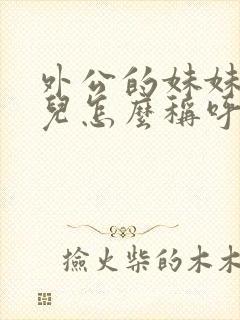 外公的妹妹
兒怎麼稱呼
撿火柴的木木